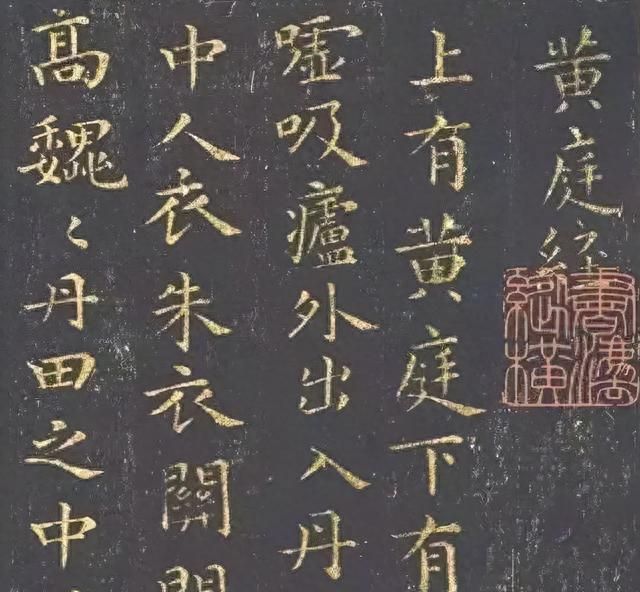 黄庭經
上有黄庭下有
嘘吸廬外出入丹
中人衣朱衣關
高巍〻丹田之中